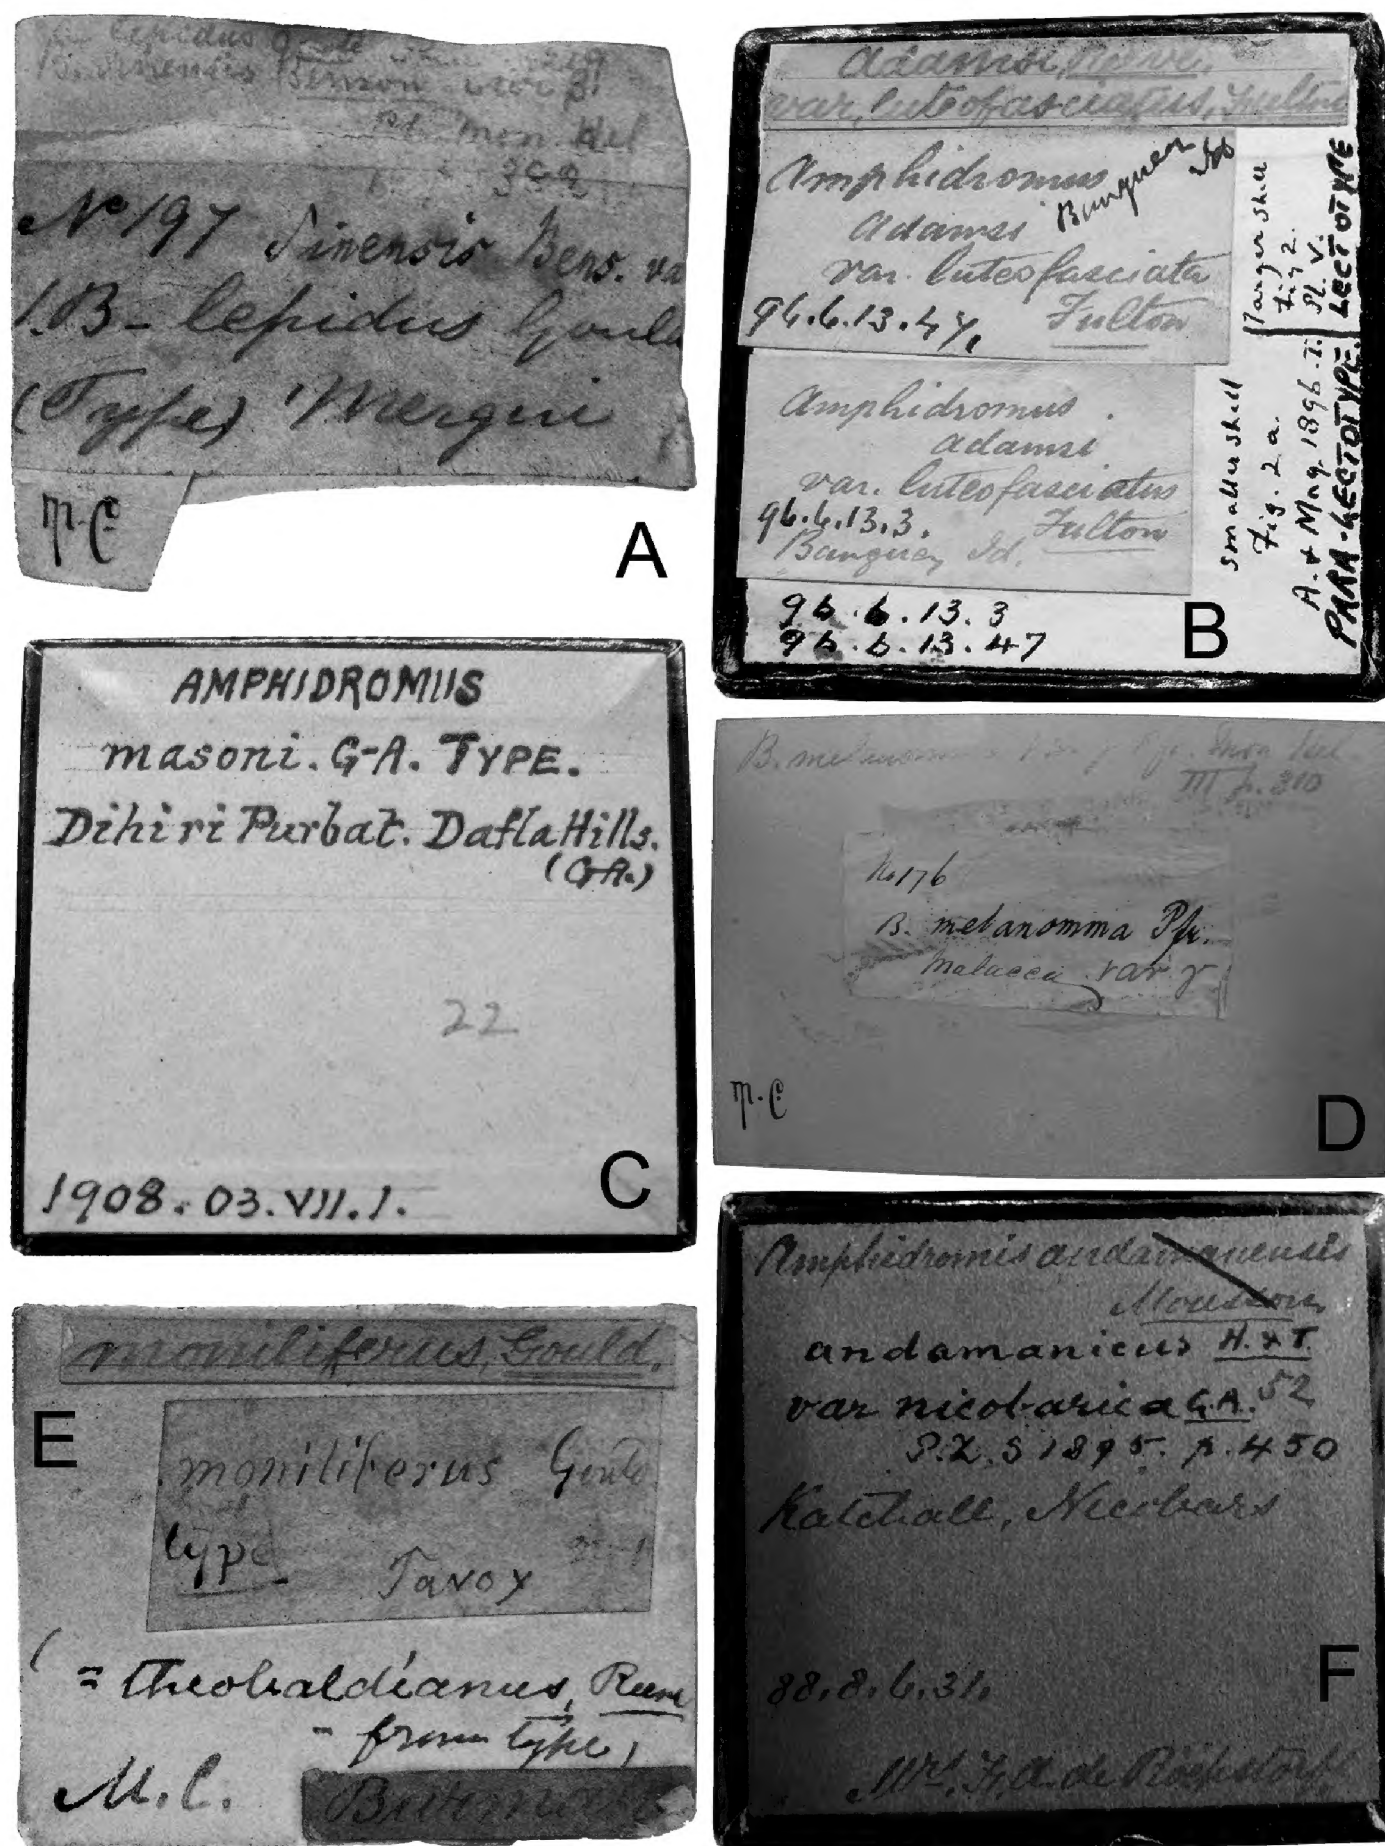 lepidus
Sinensis Benson var β
Mon. Hel
No 197 Sinensis Bens. va
B- lepidus Gould
(Type) Mergui
M.C
A
adamsi, Reeve,
var, luteofasciatus, Fulton
Amphidromus
Banguey Id
adamsi
var. luteofasciata
96.6.13.47. Fulton
Amphidromus.
adamsi
var. luteofasciatus
96.6.13.3. Fulton
Banguey Id.
96.6.13.3
96.6.13.47
smaller shell
Fig. 2 a.
larger shell
Fig 2.
A. & Mag. 1896. Pl. V.
PARA-LECTOTYPE, LECTOTYPE
B
AMPHIDROMUS
masoni. G-A. TYPE.
Dihiri Purbat. Dafla Hills.
(G-A.)
22
1908.03.VII.1.
C
B. melanomma Pfr. Mon Hel
III p. 310
No 176
B. melanomma Pfr.
Malacca var γ
M.C
D
moniliferus, Gould.
E
moniliferus Gould
type
Tavoy
( = theobaldianus, Reeve
- from type)
M.C.
Amphidromis andamanensis
Mousson
andamanicus H. & T.
var nicobarica G.A. 52
P.Z.S 1895. p. 450
Katchall, Nicobars
F
88.8.6.31.
Mrs. F. A. de Röepstorff